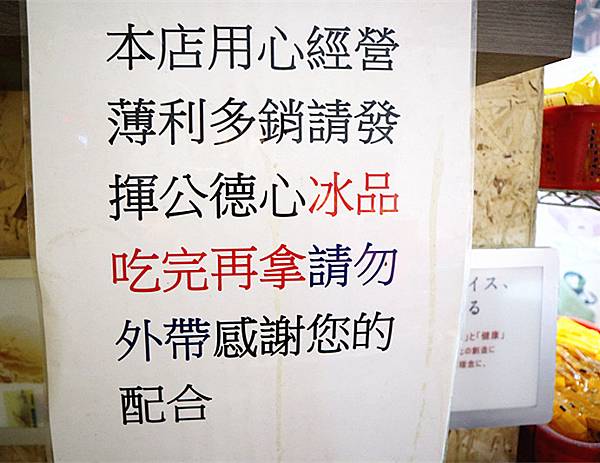 本店用心經營
薄利多銷請發
揮公德心冰品
吃完再拿請勿
外帶感謝您的
配合
イス、
る
」と「健康」
の創造に